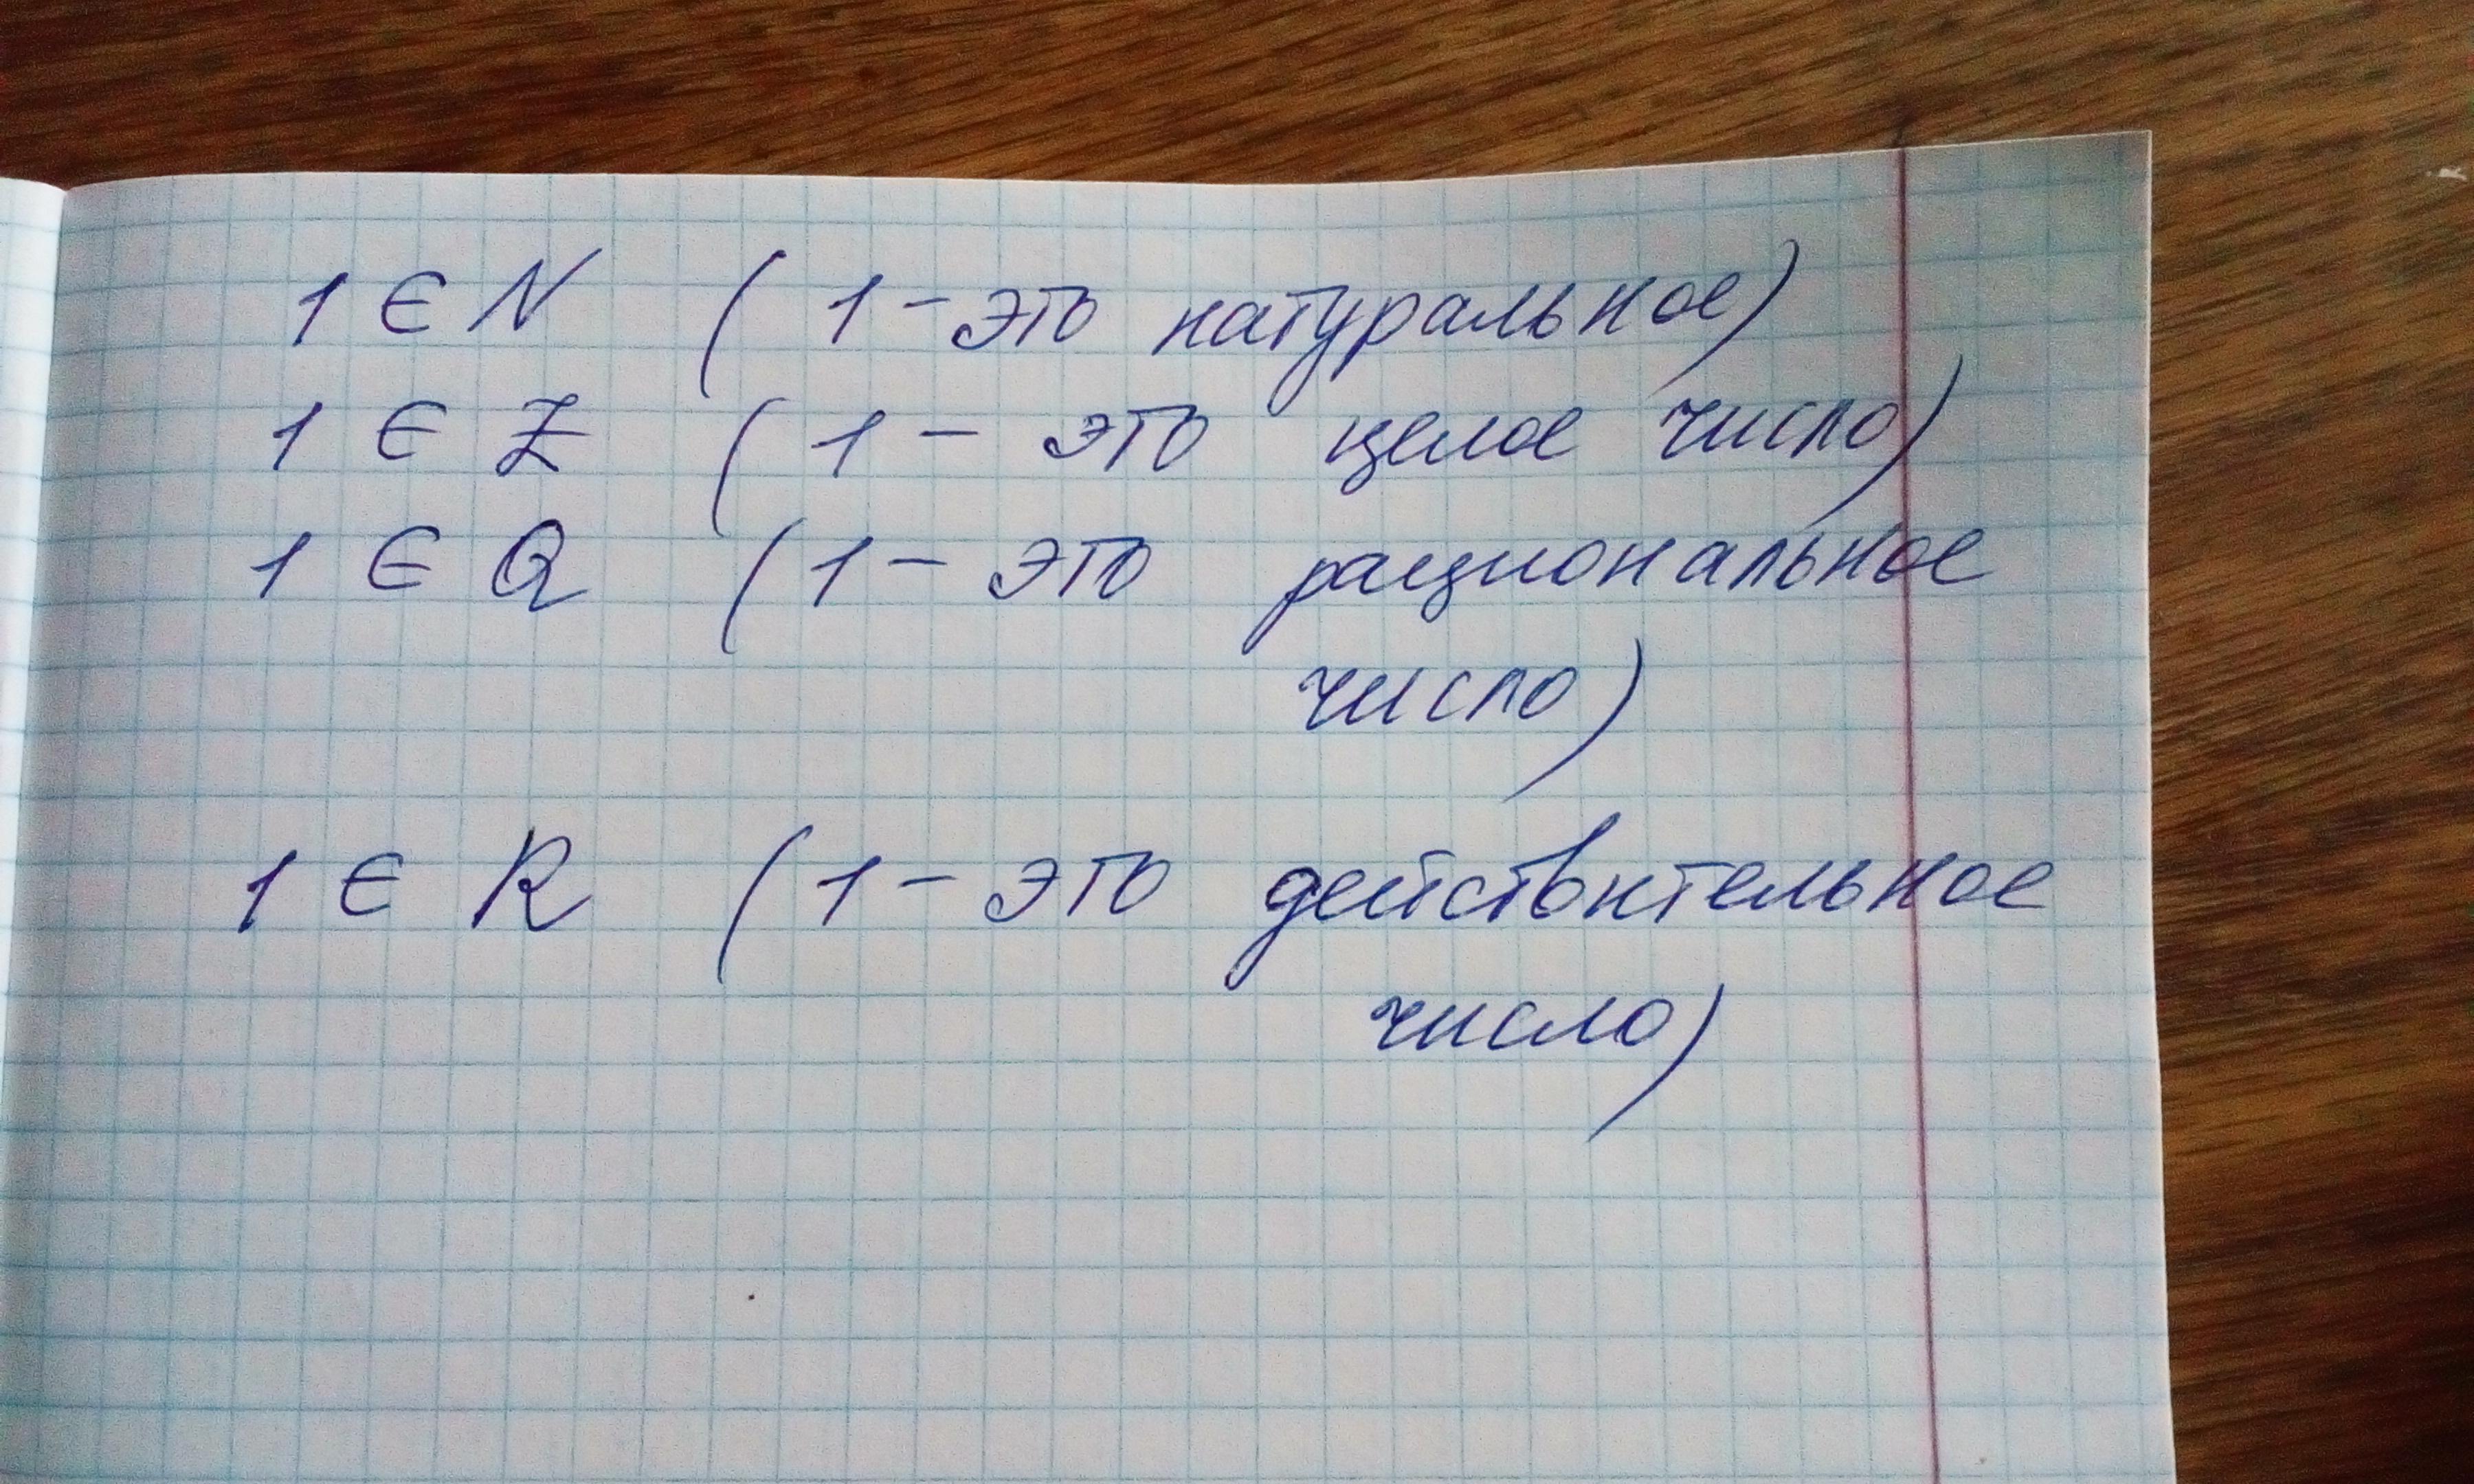 1 ∈ N (1 - это натуральное)
1 ∈ Z (1 - это целое число)
1 ∈ Q (1 - это рациональное
число)
1 ∈ R (1 - это действительное
число)